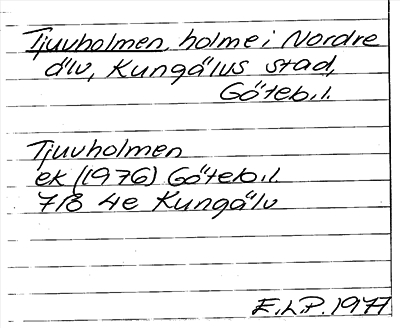 Tjuvholmen, holme i Nordre
älv, Kungälvs stad,
Göteb.l.
Tjuvholmen
ek (1976) Göteb.l.
7B 4e Kungälv
E.L.P. 1977